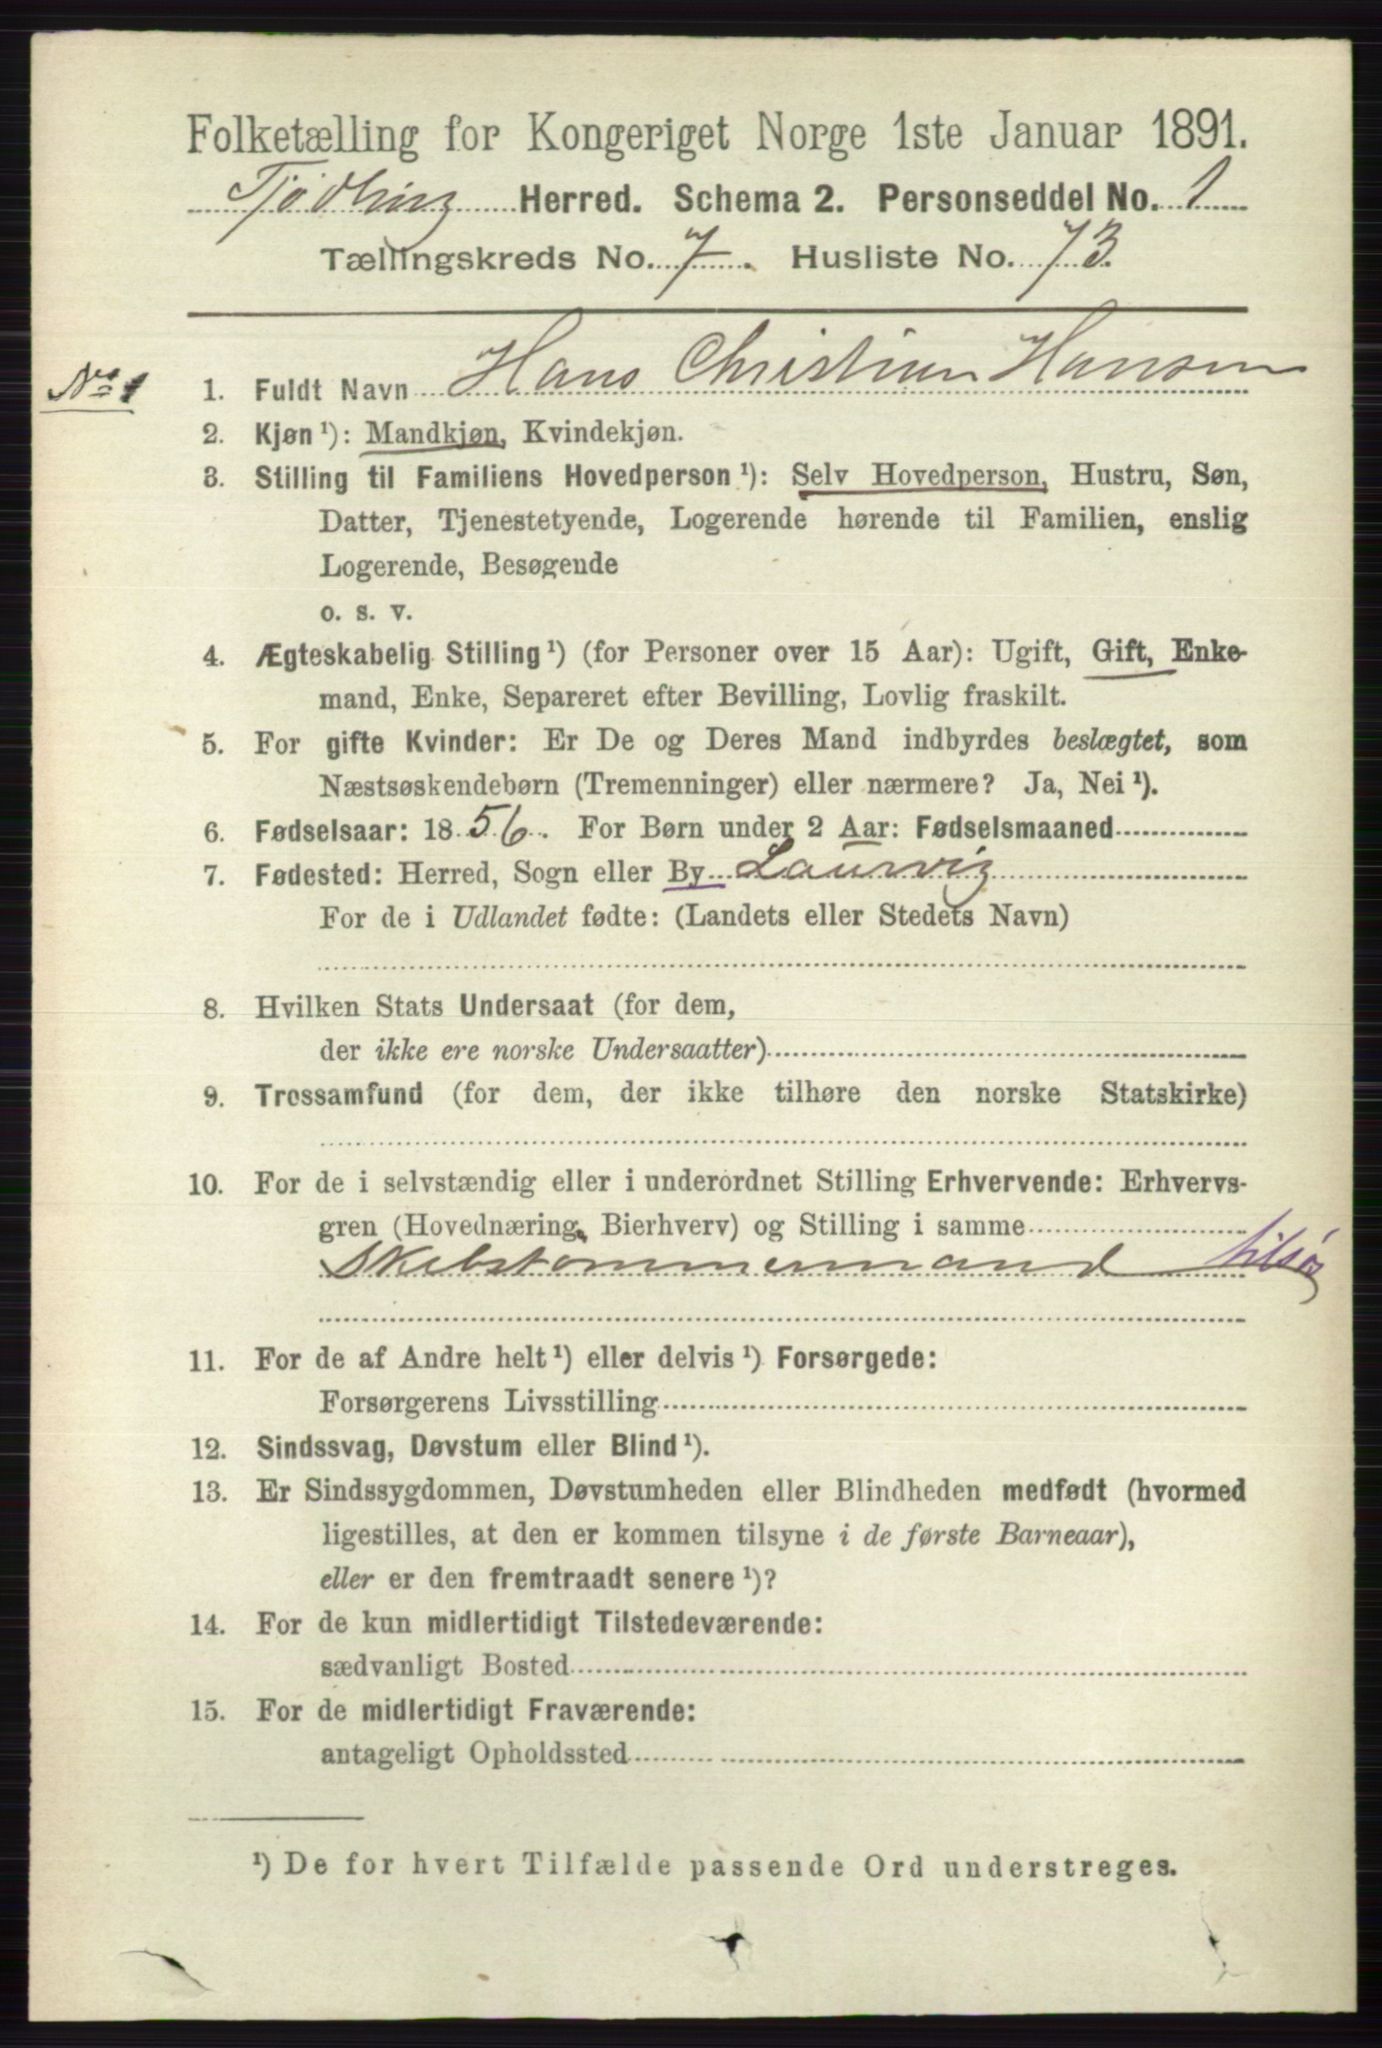 Folketælling for Kongeriget Norge 1ste Januar 1891.
Tjødling Herred. Schema 2. Personseddel No. 1
Tællingskreds No. 7. Husliste No. 73.
No 1
1. Fuldt Navn Hans Christian Hansen
2. Kjøn ¹): Mandkjøn, Kvindekjøn.
3. Stilling til Familiens Hovedperson ¹): Selv Hovedperson, Hustru, Søn,
Datter, Tjenestetyende, Logerende hørende til Familien, enslig
Logerende, Besøgende
o. s. v.
4. Ægteskabelig Stilling ¹) (for Personer over 15 Aar): Ugift, Gift, Enke-
mand, Enke, Separeret efter Bevilling, Lovlig fraskilt.
5. For gifte Kvinder: Er De og Deres Mand indbyrdes beslægtet, som
Næstsøskendebørn (Tremenninger) eller nærmere? Ja, Nei ¹).
6. Fødselsaar: 1856. For Børn under 2 Aar: Fødselsmaaned
7. Fødested: Herred, Sogn eller By Laurvig
For de i Udlandet fødte: (Landets eller Stedets Navn)
8. Hvilken Stats Undersaat (for dem,
der ikke ere norske Undersaatter)
9. Trossamfund (for dem, der ikke tilhøre den norske Statskirke)
10. For de i selvstændig eller i underordnet Stilling Erhvervende: Erhvervs-
gren (Hovednæring, Bierhverv) og Stilling i samme
Skibstømmermand tilsøs
11. For de af Andre helt ¹) eller delvis ¹) Forsørgede:
Forsørgerens Livsstilling
12. Sindssvag, Døvstum eller Blind ¹).
13. Er Sindssygdommen, Døvstumheden eller Blindheden medfødt (hvormed
ligestilles, at den er kommen tilsyne i de første Barneaar),
eller er den fremtraadt senere ¹)?
14. For de kun midlertidigt Tilstedeværende:
sædvanligt Bosted
15. For de midlertidigt Fraværende:
antageligt Opholdssted
¹) De for hvert Tilfælde passende Ord understreges.